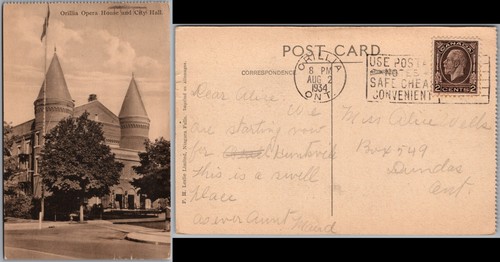 Orillia Opera House and City Hall.
F. H. Leslie Limited, Niagara Falls, Canada
POST CARD
CORRESPONDENCE
ORILLIA
8 PM
AUG 2
1934
ONT.
USE POSTAL
NOTES
SAFE CHEAP
CONVENIENT
CANADA
2 CENTS 2
Dear Alice: We
are starting now
for Huntsvile
This is a swell
place
as ever Aunt Maud
Miss Alice
Box 549
Dundas
Ont.